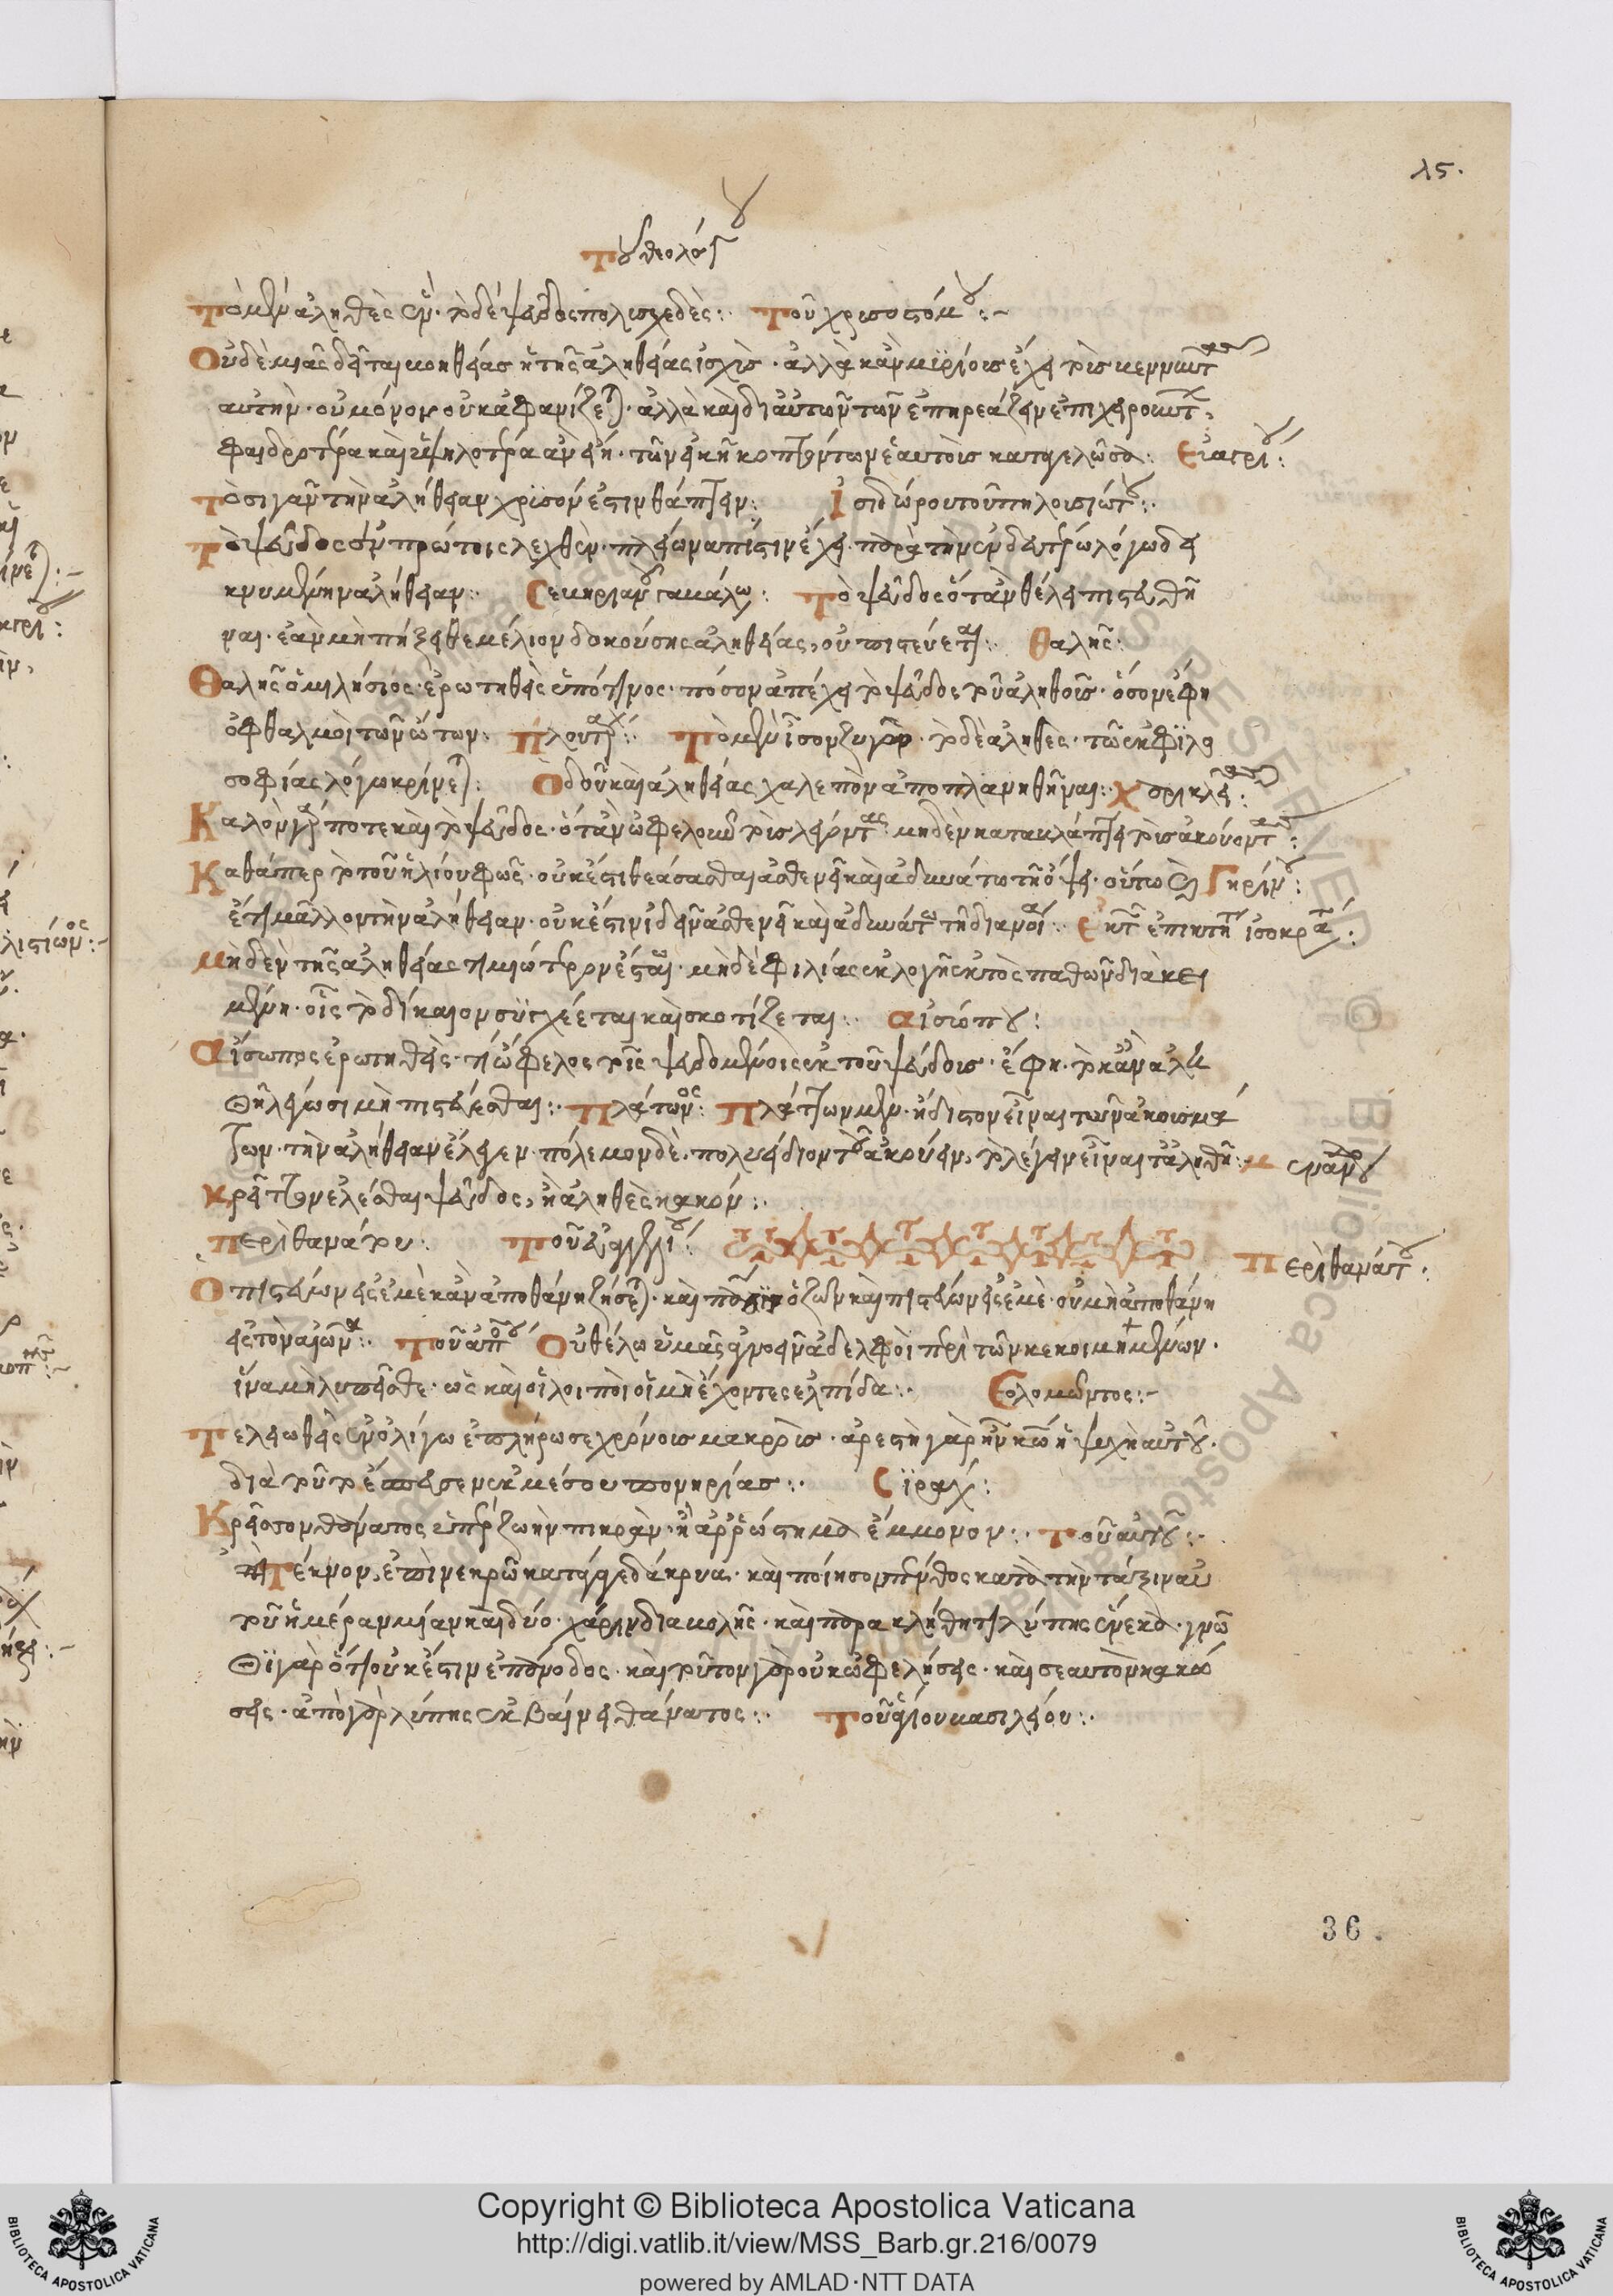 λς.
Τοῦ θεολόγου
Τὸ μὲν ἀληθὲς ἕν· τὸ δὲ ψεῦδος πολυσχεδές: Τοῦ χρυσοστόμου:~
Οὐδεμιᾶς δεῖται βοηθείας ἡ τῆς ἀληθείας ἰσχύς· ἀλλὰ κἂν μυρίους ἔχη τοὺς σβεννύντας
αὐτήν· οὐ μόνον οὐκ ἀφανίζεται· ἀλλὰ καὶ δι αὐτῶν τῶν ἐπηρεάζειν ἐπιχειρούντων,
φαιδροτέρα καὶ ὑψηλοτέρα ἄνεισι· τῶν εἰκῆ κοπτόντων ἑαυτοὺς καταγελῶσα: Εὐαγρίου:
Τὸ σιγᾶν τὴν ἀλήθειαν χρυσόν ἐστιν θάπτειν: Ἰσιδώρου τοῦ πηλουσιώτου:
Τὸ ψεῦδος ἐν πρώτοις λεχθὲν· πλείωνα πίστιν ἔχει· παρὰ τὴν ἐν δευτέρω λόγω δει
κνυμένην ἀλήθειαν: Τὸ ψεῦδος ὅταν θέλει πιστευθῆ
ναι· ἐὰν μὴ πήξη θεμέλιον δοκούσης ἀληθείας, οὐ πιστεύεται: Θαλῆς:
Θαλῆς ὁ μιλήσιος· ἐρωτηθεὶς ὑπό τινος· πόσον ἀπέχει τὸ ψεῦδος τοῦ ἀληθοῦς· ὅσον ἔφη
ὀφθαλμοὶ τῶν ὤτων: Πλουτάρχου: Τὸ μὲν ἴσον ζυγῶ· τὸ δὲ ἀληθὲς· τῶ ἐκ φιλο
σοφίας λόγω κρίνεται: Ὁδοῦ καὶ ἀληθείας χαλεπὸν ἀποπλανηθῆναι:
Καλὸν γάρ ποτε καὶ τὸ ψεῦδος· ὅταν ὠφελοῦν τοὺς λέγοντας μηδὲν καταβλάπτει τοὺς ἀκούοντας:
Καθάπερ τὸ τοῦ ἡλίου φῶς· οὐκ ἔστι θεάσασθαι ἀσθενεῖ καὶ ἀδυνάτω τῆ ὄψει· οὕτω
ἔτι μᾶλλον τὴν ἀλήθειαν· οὐκ ἔστιν ἰδεῖν ἀσθενεῖ καὶ ἀδυνάτω τῆ διανοία:
Μηδὲν τῆς ἀληθείας τιμιώτερον ἔσται· μηδὲ φιλίας ἐκλογῆς ἐκτὸς παθῶν διακει
μένη· οἷς τὸ δίκαιον συγχέεται καὶ σκοτίζεται: Αἰσώπου:
Αἴσωπος ἐρωτηθεὶς· τί ὤφελος τοῖς ψευδομένοις ἐκ τοῦ ψεύδους· ἔφη· τὸ κἂν ἀλη
θῆ λέγωσι μὴ πιστεύεσθαι: Πλάτωνος: Πλάτων μὲν· ἥδιστον εἶναι τῶν ἀκουσμά
των· τὴν ἀλήθειαν ἔλεγεν· πολέμων δὲ· πολὺ ἥδιον τοῦ ἀκούειν, τὸ λέγειν εἶναι τἀληθῆ: Μενάνδρου
Κρεῖττον ἑλέσθαι ψεῦδος, ἢ ἀληθὲς κακόν:
Περὶ θανάτου: Τοῦ εὐαγγελίου: Περὶ θανάτου:
Ὁ πιστεύων εἰς ἐμὲ κἂν ἀποθάνη ζήσεται· καὶ πᾶς ὁ ζῶν καὶ πιστεύων εἰς ἐμὲ· οὐ μὴ ἀποθάνη
εἰς τὸν αἰῶνα: Τοῦ ἀποστόλου Οὐ θέλω ὑμᾶς ἀγνοεῖν ἀδελφοὶ περὶ τῶν κεκοιμημένων·
ἵνα μὴ λυπεῖσθε· ὡς καὶ οἱ λοιποὶ οἱ μὴ ἔχοντες ἐλπίδα: Σολομῶντος:~
Τελειωθεὶς ἐν ὀλίγω ἐπλήρωσε χρόνους μακρούς· ἀρεστὴ γὰρ ἦν κυρίω ἡ ψυχὴ αὐτοῦ·
διὰ τοῦτο ἔσπευσεν ἐκ μέσου πονηρίας: Σιράχ:
Κρεῖσσον θάνατος ὑπὲρ ζωὴν πικρὰν· ἢ ἀρρώστημα ἔμμονον: Τοῦ αὐτοῦ:
Τέκνον, ἐπὶ νεκρῶ κατάγαγε δάκρυα· καὶ ποίησον πένθος κατὰ τὴν τάξιν αὐ
τοῦ ἡμέραν μίαν καὶ δύο· χάριν διαβολῆς· καὶ παρακλήθητι λύπης ἕνεκα· γνῶ
θι γὰρ ὅτι οὐκ ἔστιν ἐπάνοδος· καὶ τοῦτον γὰρ οὐκ ὠφελήσεις· καὶ σεαυτὸν κακώ
σεις· ἀπὸ γὰρ λύπης ἐκβαίνει θάνατος: Τοῦ ἁγίου βασιλείου:
36.
Copyright © Biblioteca Apostolica Vaticana
http://digi.vatlib.it/view/MSS_Barb.gr.216/0079
powered by AMLAD·NTT DATA
BIBLIOTECA APOSTOLICA VATICANA
BIBLIOTECA APOSTOLICA VATICANA